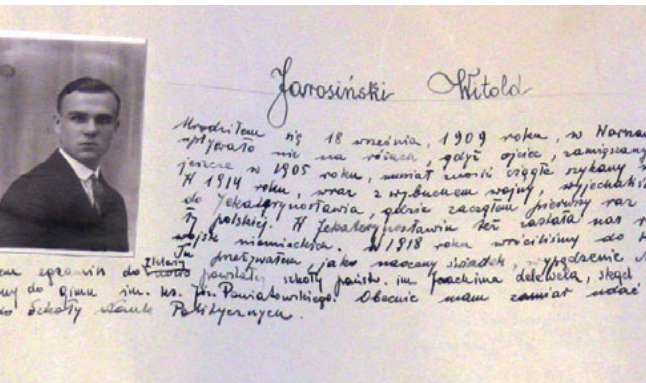 Jarosiński Witold
Urodziłem się 18 września, 1909 roku, w Warsza
upływało nie na różach, gdyż ojciec, zamieszany
jeszcze w 1905 roku, musiał znosić ciągłe szykany
W 1914 roku, wraz z wybuchem wojny, wyjechaliś
do Jekaterynosławia, gdzie zacząłem pierwszy raz
ły polskiej. W Jekaterynosławiu też zastała nas
wojsk niemieckich. W 1918 roku wróciliśmy do
Tu przeżywałem, jako naoczny świadek, wypędzenie
egzamin do nowo powstałej szkoły państw. im. Joachima Lelewela, skąd
ny do gimn. im. ks. Józ. Poniatowskiego. Obecnie mam zamiar udać
do Szkoły Nauk Politycznych.